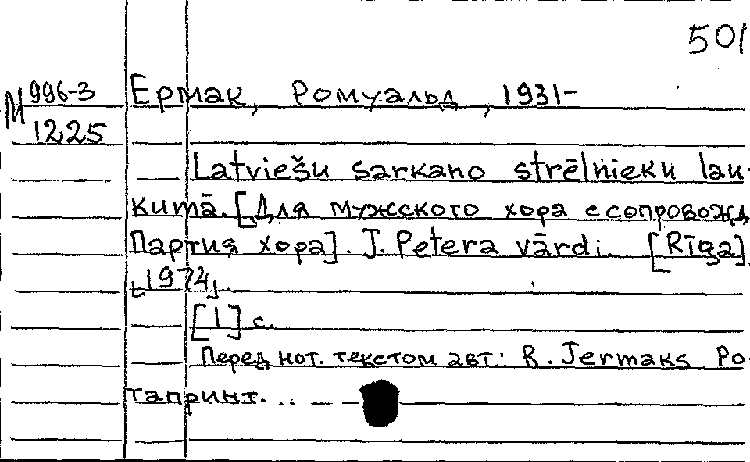 501
М 996-3
1225
Ермак, Ромуальд, 1931-
Latviešu sarkano strēlnieku lau-
kumā. [Для мужского хора с сопровожд
Партия хора]. J. Petera vārdi. [Rīga],
[1974].
[1] с.
Перед нот. текстом авт.: R. Jermaks Ро-
тапринт.